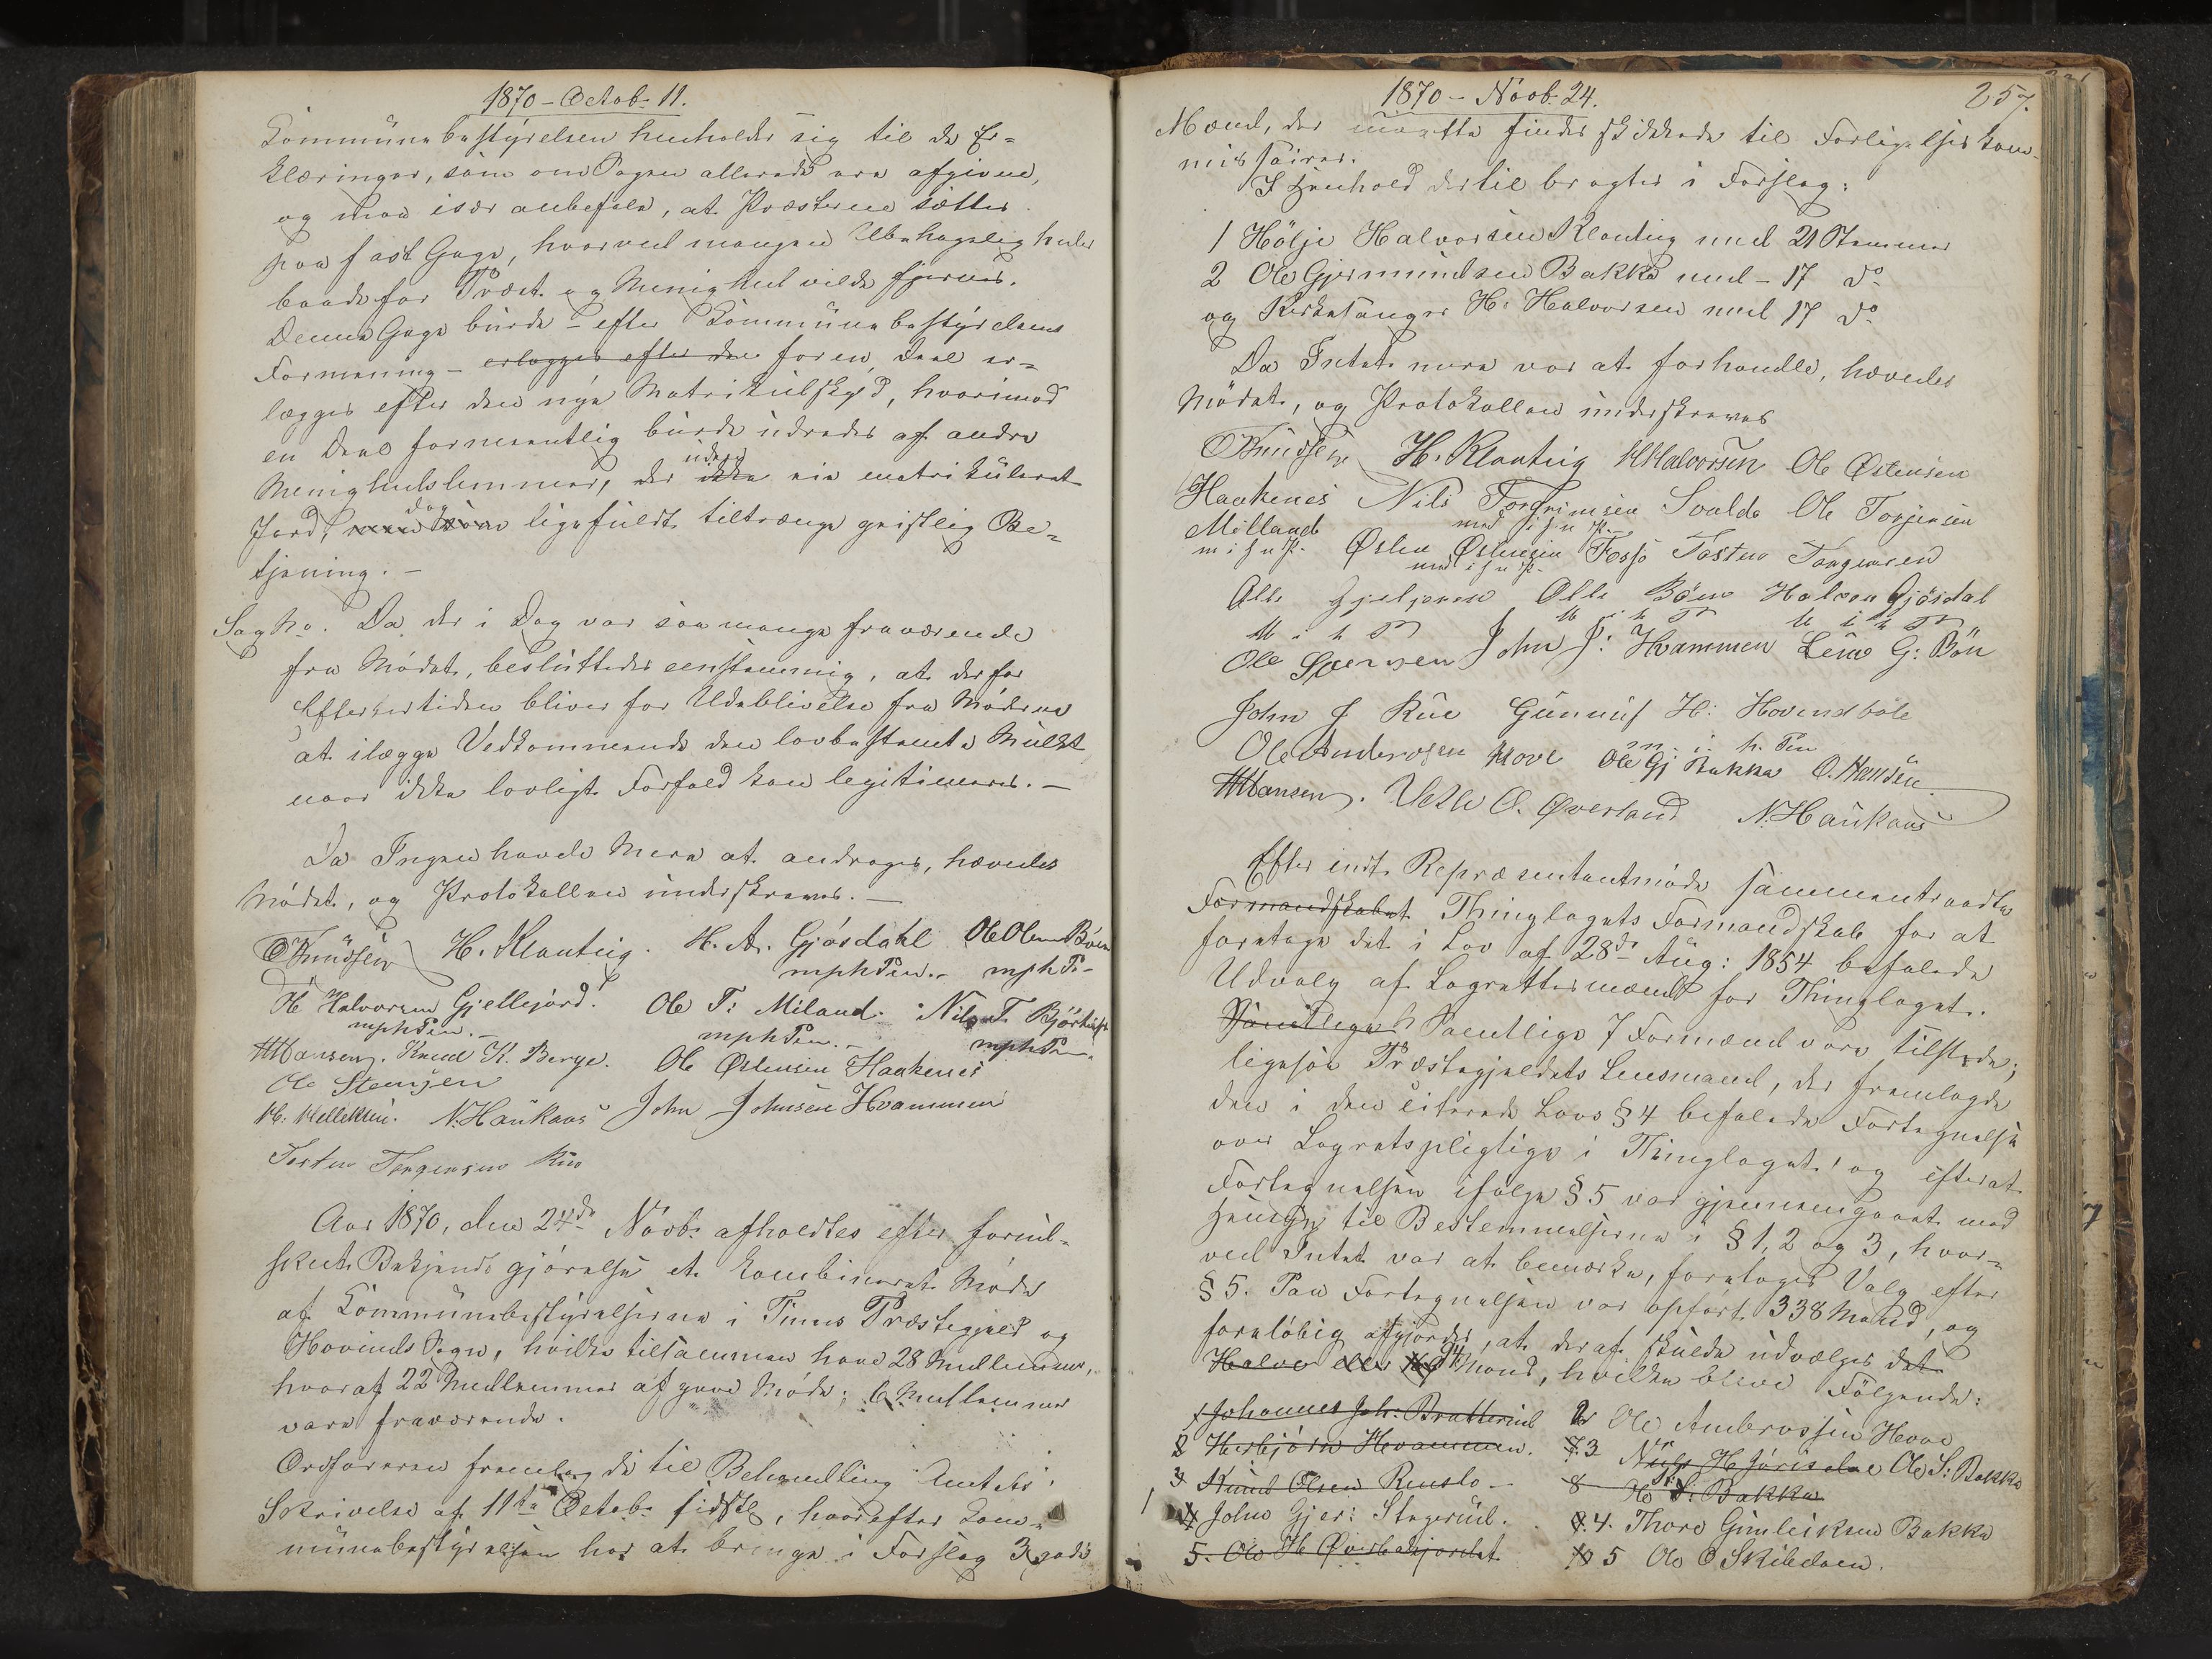 1870 - Octob. 11.
Kommunebestyrelsen henholder sig til de Er=
klæringer, som om Sagen allerede ere afgivne,
og maa især anbefale, at Præsterne sættes
paa fast Gage, hvorved mangen Ubehagelighed
baade for Præst og Menighed vilde fjernes.
Denne Gage burde - efter Kommunebestyrelsens
Formening - erlægges efter den for en Deel er=
lægges efter den nye Matrikulskyld, hvorimod
en Deel formeentlig burde udredes af andre
Menighedslemmer, der ikke uden eie matrikuleret
Jord, dog ligefuldt tiltrænge geistlig Be=
tjening. -
Sag No. Da der i Dag var saa mange fraværende
fra Mödet, besluttedes eenstemmig, at der for
Eftertiden bliver for Udeblivelse fra Möderne
at ilægge Vedkommende den lovbestemte Mulkt
naar ikke lovligt Forfald kan legitimeres. -
Da Ingen havde Mere at andrage, hævedes
Mödet, og Protokollen underskreves. -
O Knudsen H. Klonteig. H. A. Gjösdahl Ole Olsen Böen
mphPen. - mphP -
H Halvorsen Gjellejord. Ole T: Miland. Nils T.
mphPen. - mphPen. - mphPen
HHansen. Knud K. Berge. Ole Østensen Haakenes
Ole Stensen
H: Helleksen. N. Haukaas John Johnsen Hvammen
Tosten Torgersen Rue
Aar 1870, den 24de Novb. afholdtes efter forud=
skeet Bekjendtgjörelse et kombineret Möde
af Kommunebestyrelserne i Tinns Præstegjeld og
Hovinds Sogn, hvilke tilsammen have 28 Medlemmer,
hvoraf 22 Medlemmer afgave Möde; 6 Medlemmer
vare fraværende.
Ordföreren fremlagde til Behandling Amtets
Skrivelse af 11te Octob. sidstl, hvorefter Kom=
munebestyrelsen har at bringe i Forslag 3 gode
1870 - Novb. 24.
257.
Mænd, der maatte findes skikkede til Forligelseskom-
missairer.
I Henhold dertil bragtes i Forslag:
1 Hölje Halvorsen Klonteig med 21 Stemmer
2 Ole Gjermundsen Bakke med - 17 do
og Kirkesanger H: Halvorsen med 17 do
Da Intet mere var at forhandle, hævedes
Mödet, og Protokollen underskreves
O Knudsen H. Klonteig HHalvorsen Ole Østensen
Haakenes Nils Torgrimsen Ole Torjersen
med i h n P.
Milland Østen Østensen Tosten Torgersen
m i h n P. med i h n P.
Halvor Gjösdal
M i h P M i h P M i h P
Ole Stensen John J: Hvammen G: Bön
John J Rue Gunnuf H: Hovindböle
m. i. h. Pen
Ole Ambrosen Hove Ole Gj Bakka O. Hansen
HHansen. Vetle O. Øverland N. Haukaas
Efter endt Repræsentantmöde sammentraadte
Formandskabet Thinglagets Formandskab for at
foretage det i Lov af 28de Aug: 1854 befalede
Udvalg af Lagrettesmænd for Thinglaget.
Samtlige Samtlige 7 Formænd vare tilstede;
ligesaa Præstegjeldets Lensmand, der fremlagde
den i den citerede Lovs § 4 befalede Fortegnelse
over Lagretspligtige i Thinglaget, og efterat
Fortegnelsen ifölge § 5 var gjennemgaaet med
Hensyn til Bestemmelserne i § 1, 2 og 3, hvor=
ved Intet var at bemærke, foretoges Valg efter
§ 5. Paa Fortegnelsen var opfört 338 Mand, og
foreløbig afgjordes, at deraf skulde udvælges det
Halve eller 94 Mand, hvilke bleve Fölgende:
1 Johannes Joh: Bratterud 2 Ole Ambrossen Hove
2 Herbjörn Hvammen. 7. 3 Ole S: Bakka
3 Knud Olsen 8 Ole S: Bakka
1 4 John Gjer: Stagerud. 9. 4. Thore Gunleiksen Bakka
5. Ole H 10 5 Ole O Skibdaen.